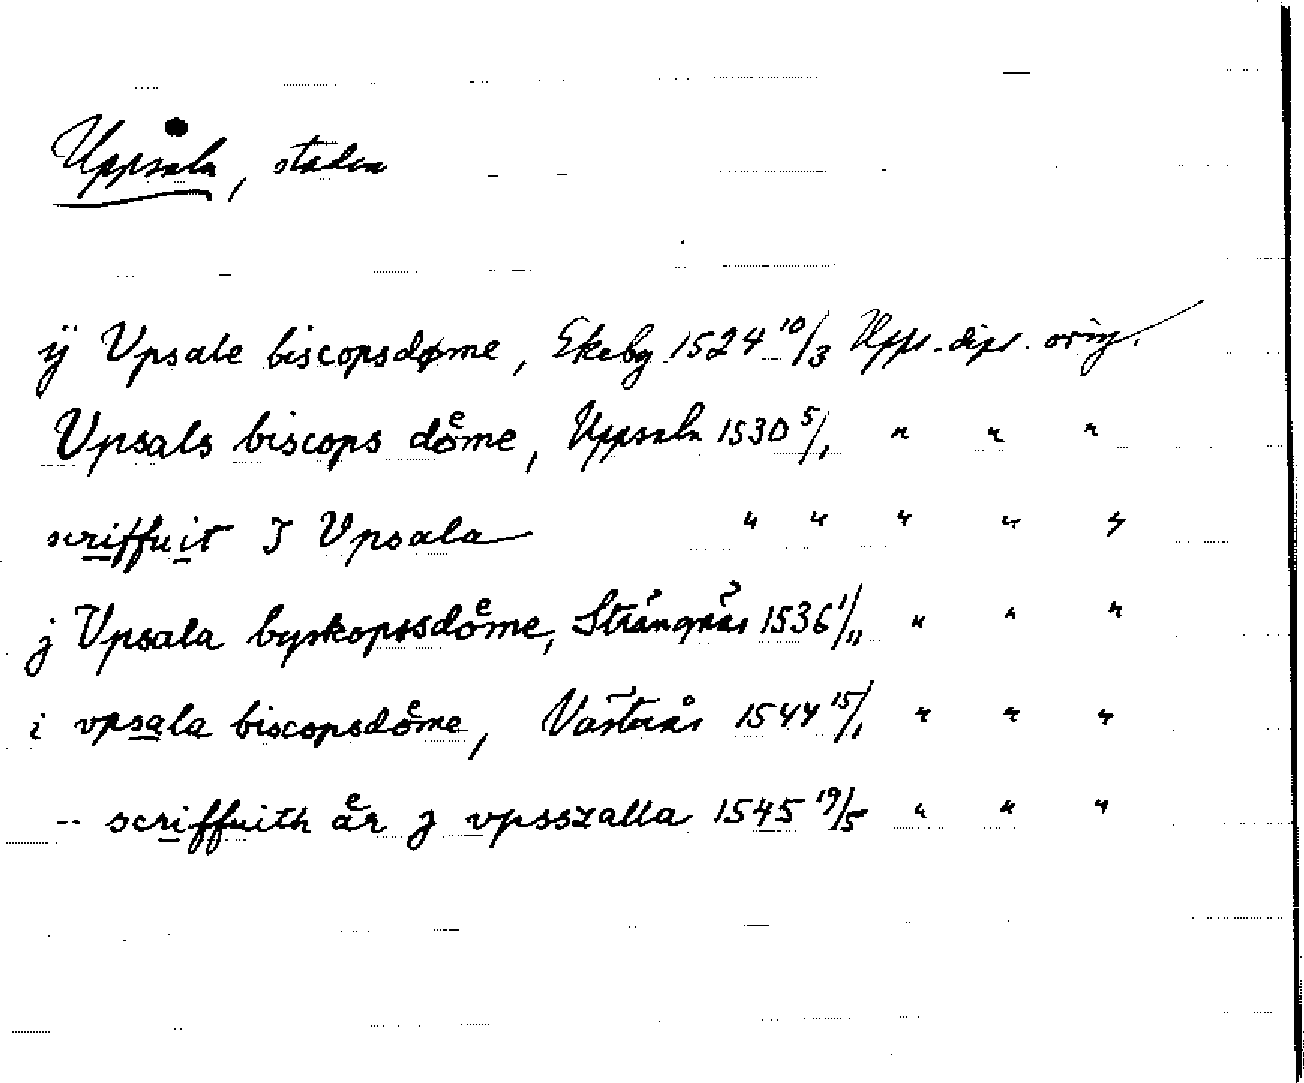 Uppsala, staden
ÿ Vpsale biscopsdøme, Ekeby 1524 10/3 Upps. dipl. orig.
Vpsals biscops doͤme, Uppsala 1530 5/1 " " "
scriffuit J Vpsala " " " " "
j Vpsala byskopssdoͤme, Strängnäs 1536 1/11 " " "
i vpsala biscopsdoͤme, Västerås 1544 15/1 " " "
-- scriffuith aͤr j vpsszalla 1545 19/5 " " "